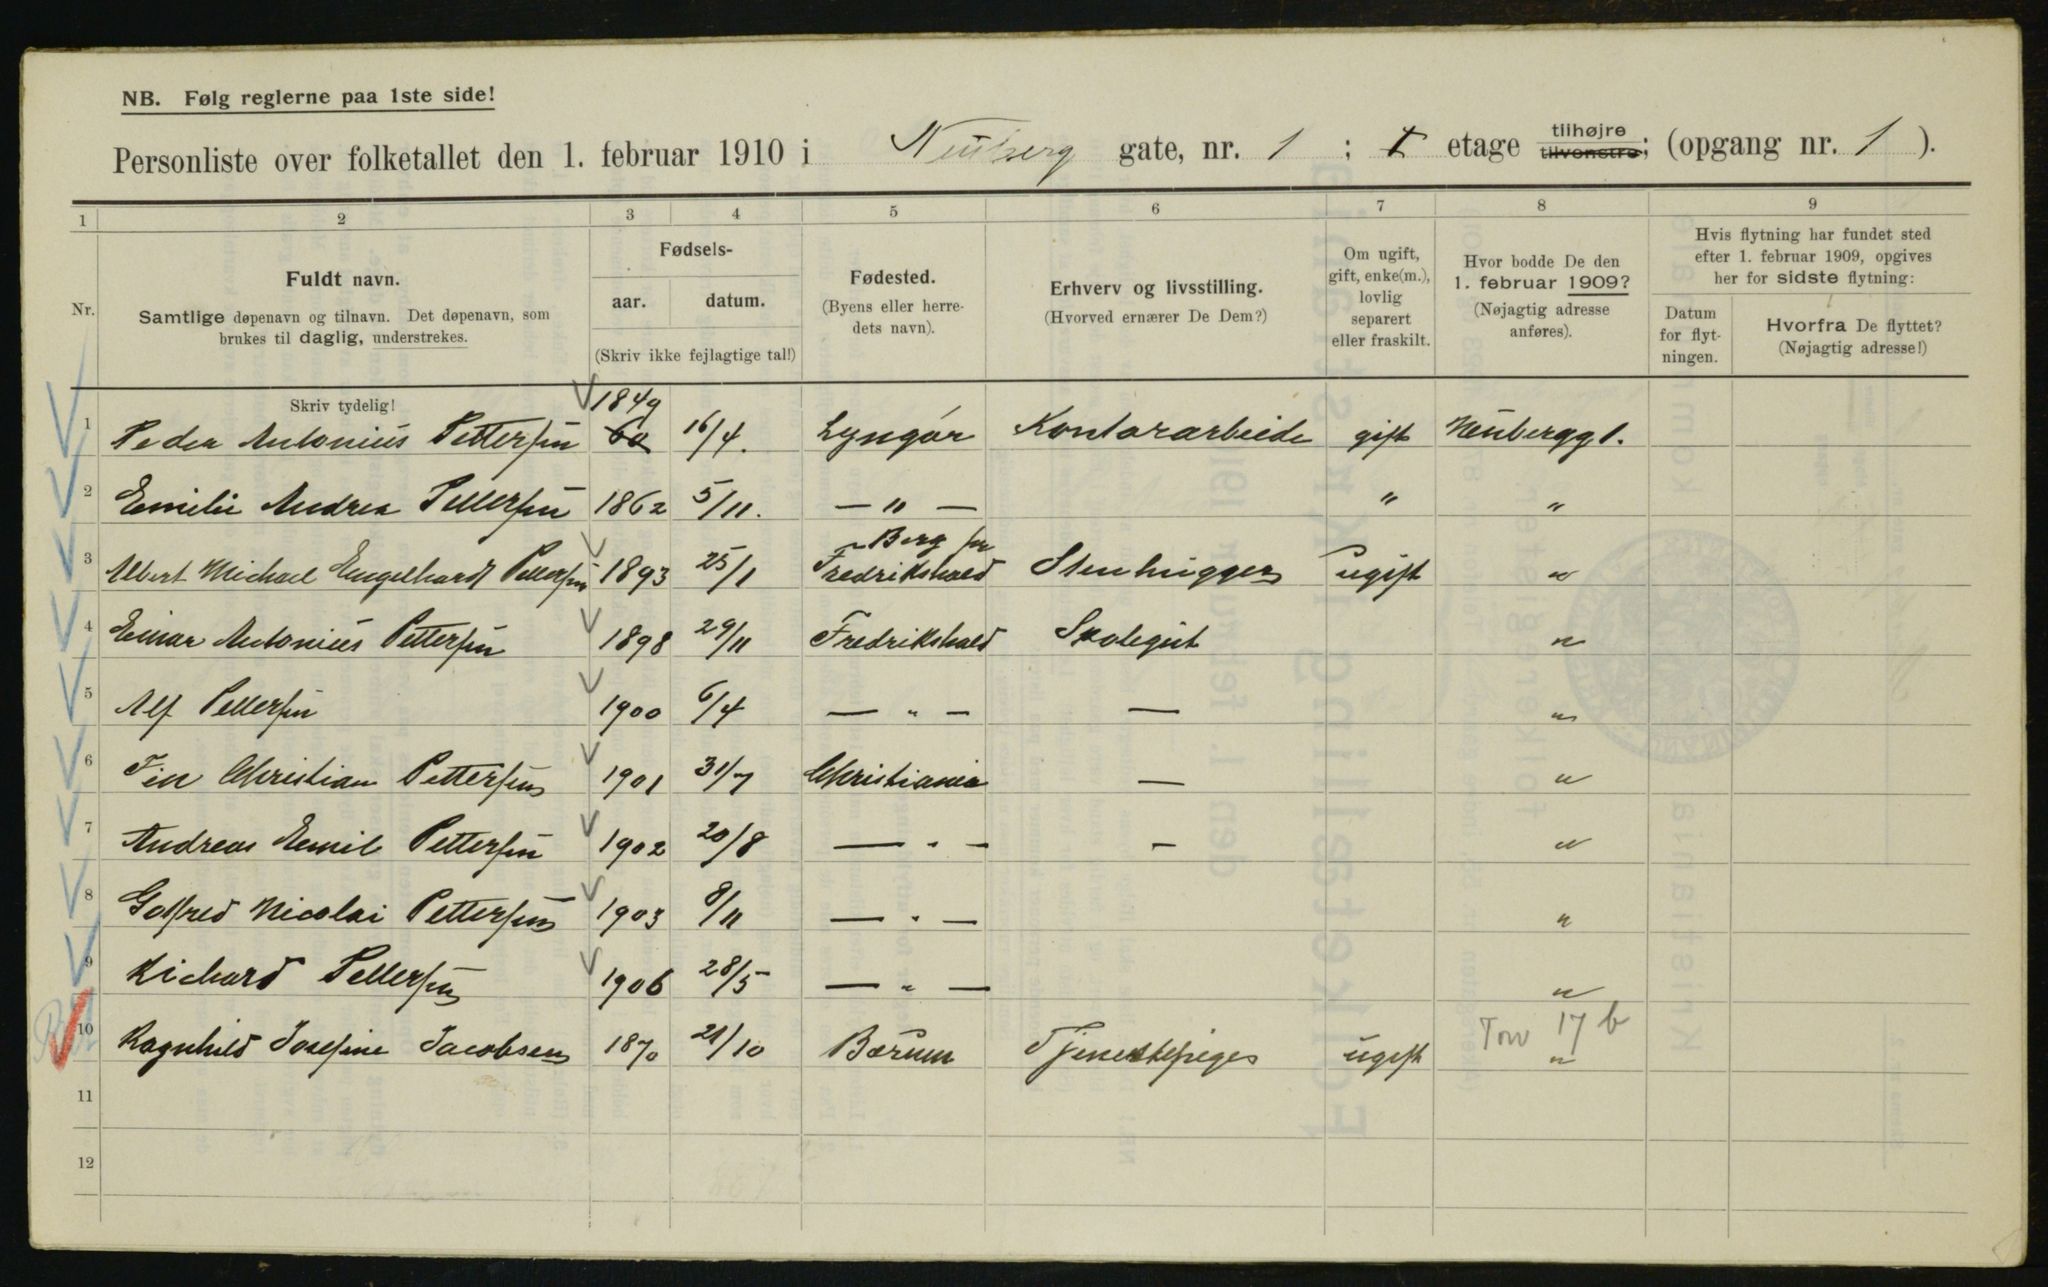 NB. Følg reglerne paa 1ste side!
Personliste over folketallet den 1. februar 1910 i Neuberg gate, nr. 1 ; 1 etage tilhøjre tilvenstre; (opgang nr. 1 ).
1 2 3 4 5 6 7 8 9
Nr.
Fuldt navn.
Samtlige døpenavn og tilnavn. Det døpenavn, som
brukes til daglig, understrekes.
Skriv tydelig!
Fødsels-
aar. datum.
(Skriv ikke fejlagtige tal!)
Fødested.
(Byens eller herre-
dets navn).
Erhverv og livsstilling.
(Hvorved ernærer De Dem?)
Om ugift,
gift, enke(m.),
lovlig
separert
eller fraskilt.
Hvor bodde De den
1. februar 1909?
(Nøjagtig adresse
anføres).
Hvis flytning har fundet sted
efter 1. februar 1909, opgives
her for sidste flytning:
Datum
for flyt-
ningen.
Hvorfra De flyttet?
(Nøjagtig adresse!)
1849
1 Peder Antonius Pettersen 60 16/4. Lyngør Kontorarbeide gift Neubergg 1.
2 Emilie Andrea Pettersen 1862 5/11. — " — " "
Berg pr
3 Albert Michael Engelhardt Pettersen 1893 25/1 Fredrikshald Stenhugger ugift "
4 Einar Antonius Pettersen 1898 29/11 Fredrikshald Skolegut "
5 Alf Pettersen 1900 6/4 — " — — "
6 Fin Christian Pettersen 1901 31/7 Christiania — "
7 Andreas Emil Pettersen 1902 20/8 — " — — "
8 Golfred Nicolai Pettersen 1903 8/11 — " — "
9 Richard Pettersen 1906 28/5 — " — "
Tow 17 b
10 Ragnhild Josefine Jacobsen 1870 21/10 Bærum Tjenestepiges ugift "
11
12